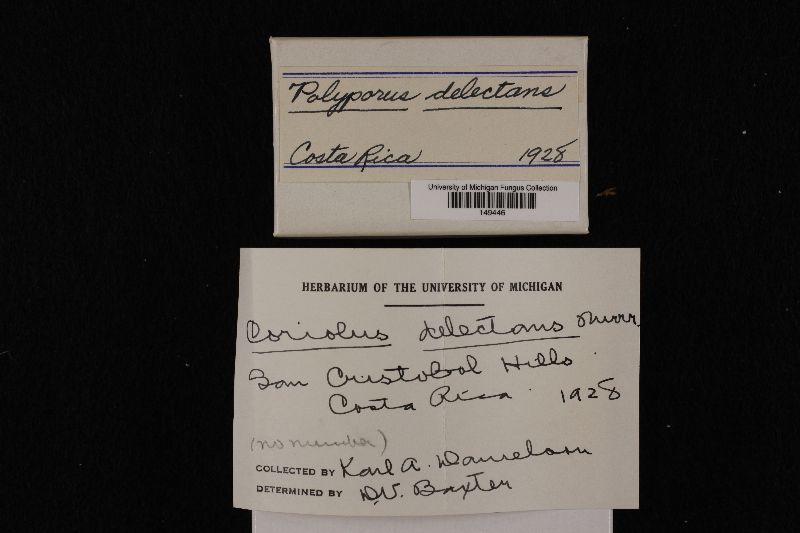 Polyporus delectans
Costa Rica 1928
University of Michigan Fungus Collection
149446
HERBARIUM OF THE UNIVERSITY OF MICHIGAN
Coriolus delectans Murr.
San Cristobal Hills
Costa Rica 1928
(no number)
COLLECTED BY Karl A. Danielson
DETERMINED BY D.V. Baxter